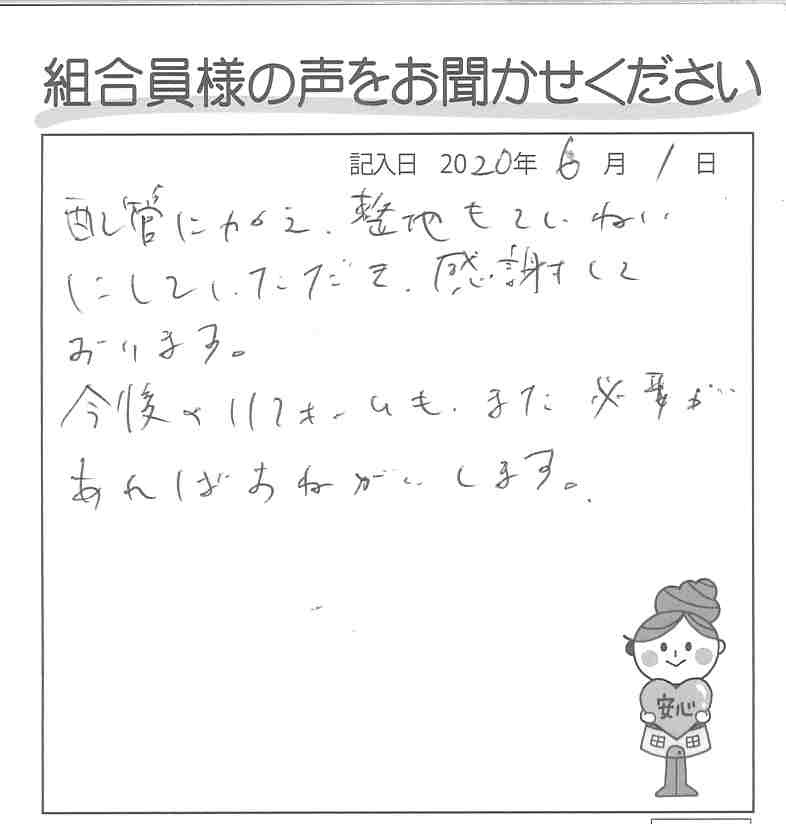 組合員様の声をお聞かせください
記入日 2020年 6月 1日
配管にかえ、整地もていねい
にしていただき、感謝して
おります。
今後のリフォームも、また必要が
あればおねがいします。
安心